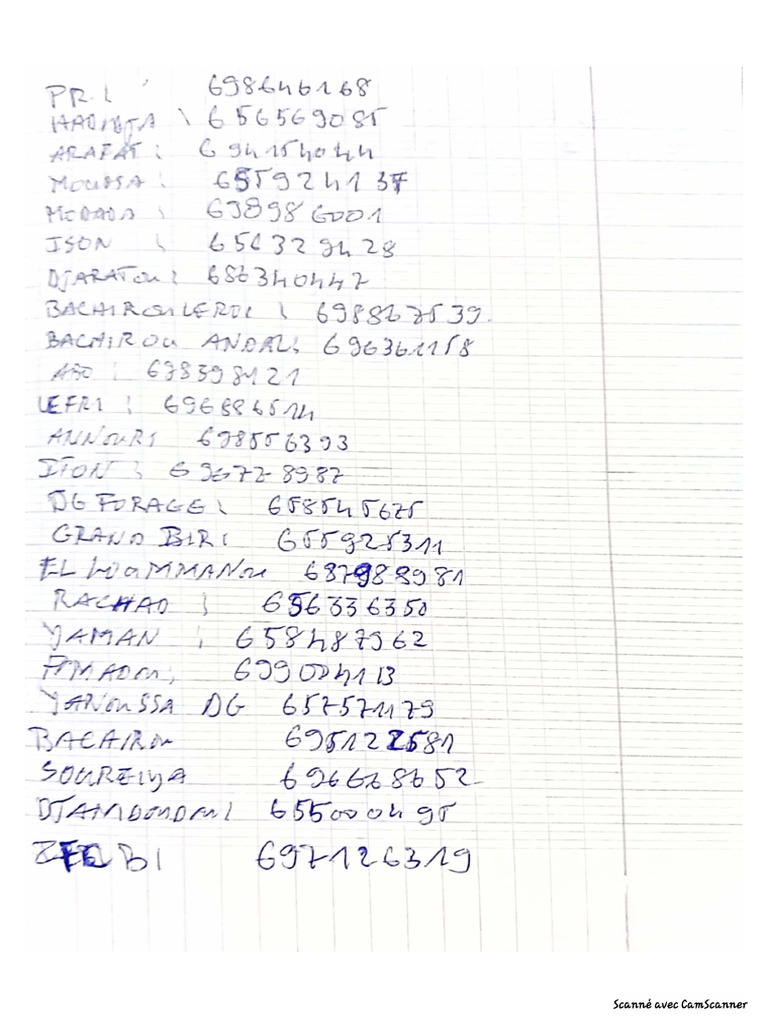 PR.I : 698646168
HADIDJA : 656569085
ARAFAT : 694154044
MOUSSA : 655924137
MODADA : 698986001
ISON : 656329428
DJARATOU : 686340447
BACHIROU LEROI : 698867539
BACHIROU ANDRE : 696361158
ABO : 698398121
LEFRI : 696886514
ANNOURI 698556393
ITON : 696728987
DG FORAGE : 658545675
GRAND BIRI 655925311
EL 687988981
RACHAD : 656336350
YAMAN : 658487962
699004113
YANOUSSA DG 657571179
BACAIROU 695122581
SOUREIYA 696668652
DJAMDOUDOU 655000495
BI 697126319
Scanné avec CamScanner